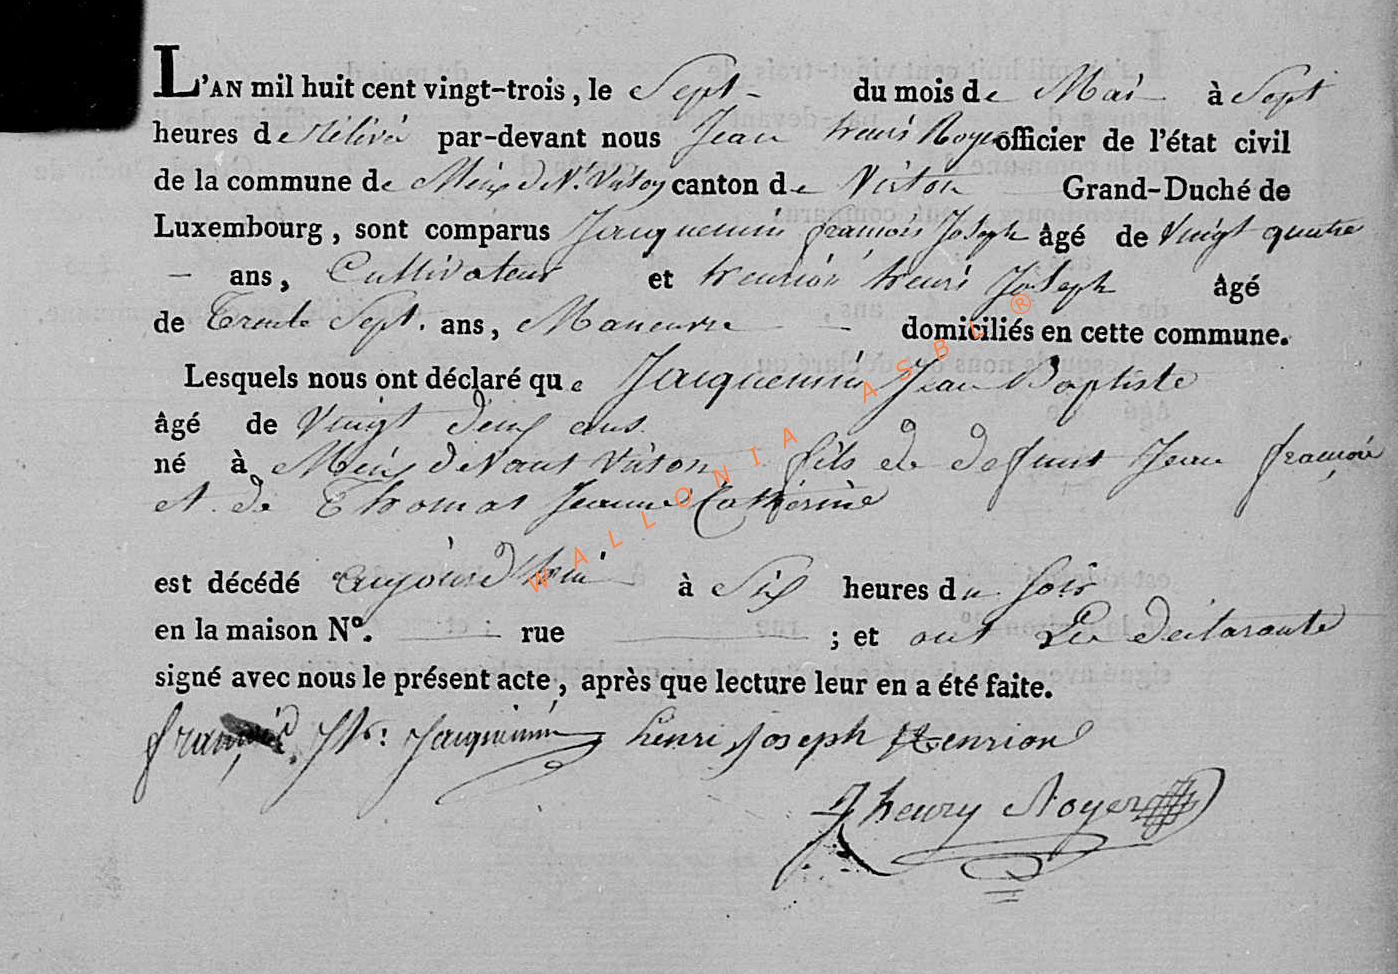 L'AN mil huit cent vingt-trois, le Sept - du mois de Mai à Sept
heures de relévé par-devant nous Jean henri Royer officier de l'état civil
de la commune de Meix dev. Virton canton de Virton Grand-Duché de
Luxembourg, sont comparus Jacquemin françois Joseph âgé de Vingt quatre
- ans, Cultivateur et henrion henri Joseph âgé
de Trente Sept. ans, Maneuvre - domiciliés en cette commune.
Lesquels nous ont déclaré que Jacquemin Jean Baptiste
âgé de Vingt deux ans.
né à Meix devant Virton fils de defunt Jean françois
et de Thomas Jeanne Catherine
est décédé aujourd'hui à Six heures du soir
en la maison N°. rue ; et ont Les déclarants
signé avec nous le présent acte, après que lecture leur en a été faite.
françois Jh: Jacquemin henri joseph Henrion
J henry Royer
WALLONIA ASBL ®